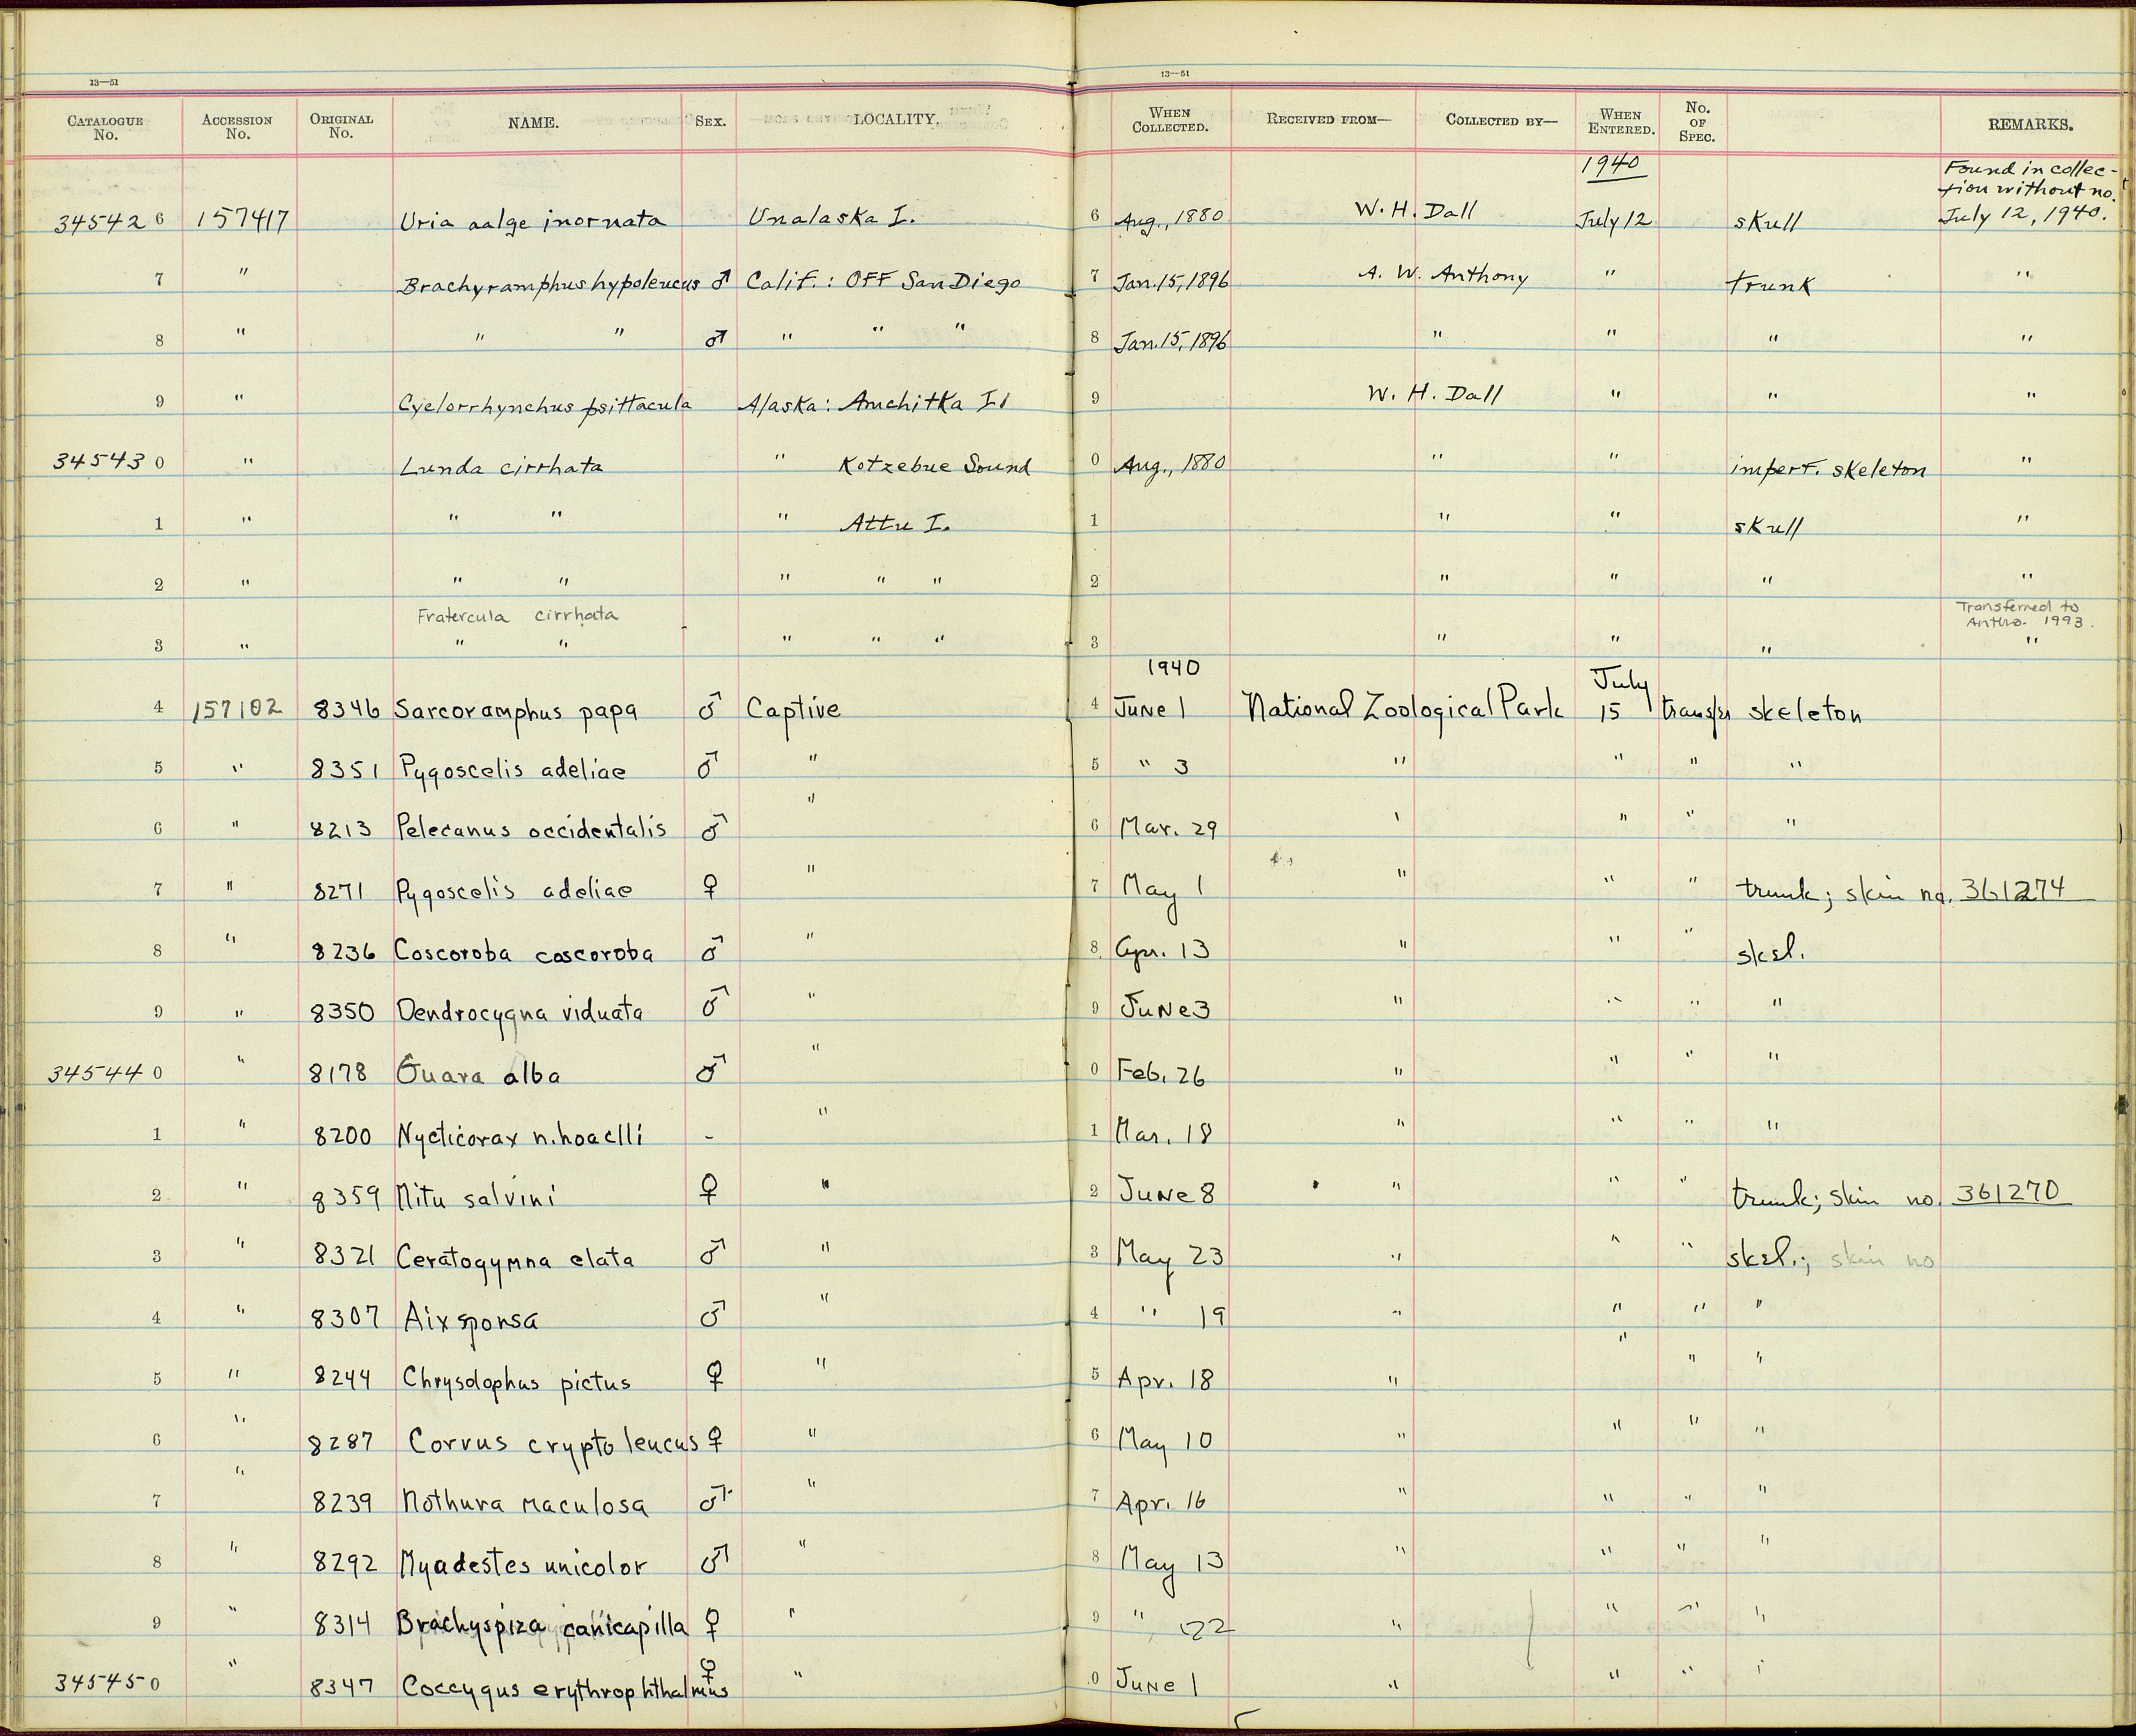 13—51 13—51
CATALOGUE No. ACCESSION No. ORIGINAL No. NAME. SEX. LOCALITY. WHEN COLLECTED. RECEIVED FROM— COLLECTED BY— WHEN ENTERED. No. OF SPEC. REMARKS.
1940 Found in collec-
tion without no.
345426 157417 Uria aalge inornata Unalaska I. 6 Aug., 1880 W. H. Dall July 12 skull July 12, 1940.
7 " Brachyramphus hypoleucus ♂ Calif.: Off San Diego 7 Jan. 15, 1896 A. W. Anthony " trunk "
8 " " " ♂ " " " 8 Jan. 15, 1896 " " " "
9 " Cyclorrhynchus psittacula Alaska: Amchitka Id 9 W. H. Dall " " "
345430 " Lunda cirrhata " Kotzebue Sound 0 Aug., 1880 " " imperf. skeleton "
1 " " " " Attu I. 1 " " skull "
2 " " " " " " 2 " " " "
Fratercula cirrhata Transferred to
Anthro. 1993.
3 " " " " " " 3 " " " "
1940 July
4 157102 8346 Sarcoramphus papa ♂ Captive 4 June 1 National Zoological Park 15 transfer skeleton
5 " 8351 Pygoscelis adeliae ♂ " 5 " 3 " " " "
6 " 8213 Pelecanus occidentalis ♂ " 6 Mar. 29 " " " "
7 " 8271 Pygoscelis adeliae ♀ " 7 May 1 " " " trunk; skin no. 361274
8 " 8236 Coscoroba coscoroba ♂ " 8 Apr. 13 " " " skel.
9 " 8350 Dendrocygna viduata ♂ " 9 June 3 " " " "
345440 " 8178 Guara alba ♂ " 0 Feb. 26 " " " "
1 " 8200 Nycticorax n. hoactli - " 1 Mar. 18 " " " "
2 " 8359 Mitu salvini ♀ " 2 June 8 " " " trunk; skin no. 361270
3 " 8321 Ceratogymna elata ♂ " 3 May 23 " " " skel.; skin no
4 " 8307 Aix sponsa ♂ " 4 " 19 " " " "
5 " 8244 Chrysolophus pictus ♀ " 5 Apr. 18 " " " "
6 " 8287 Corvus cryptoleucus ♀ " 6 May 10 " " " "
7 " 8239 Nothura maculosa ♂ " 7 Apr. 16 " " " "
8 " 8292 Myadestes unicolor ♂ " 8 May 13 " " " "
9 " 8314 Brachyspiza canicapilla ♀ " 9 " 22 " " " "
345450 " 8347 Coccygus erythrophthalmus ♀ " 0 June 1 " " " "